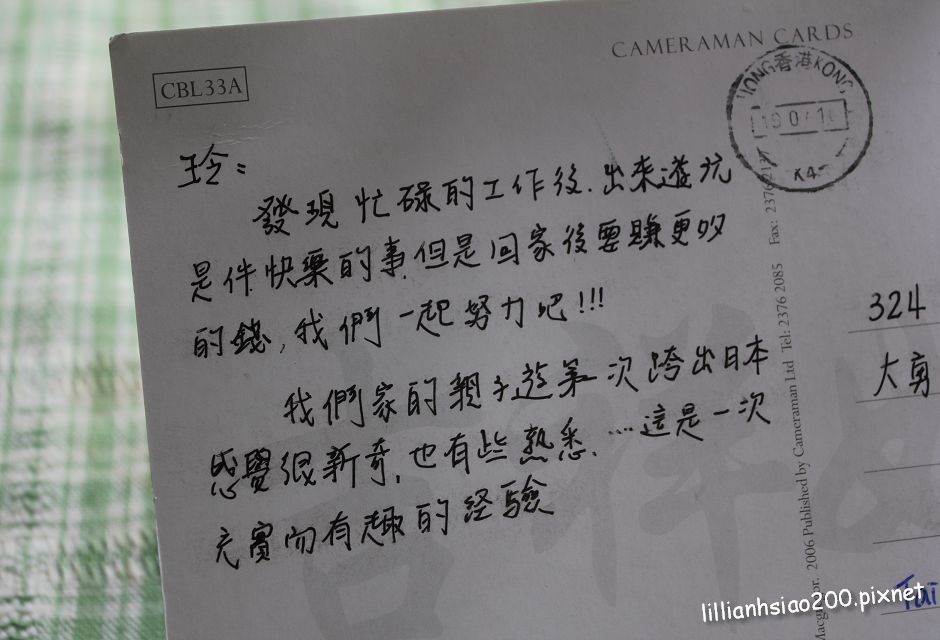 CAMERAMAN CARDS
CBL33A
HONG香港KONG
玲：
發現忙碌的工作後.出來遊玩
是件快樂的事.但是回家後要賺更多
的錢,我們一起努力吧!!!
我們家的親子遊第一次跨出日本
感覺很新奇,也有些熟悉.....這是一次
充實而有趣的經驗
324
大勇
2006 Published by Cameraman Ltd Tel: 2376 2085 Fax:
吉祥
Tai
lillianhsiao200.pixnet